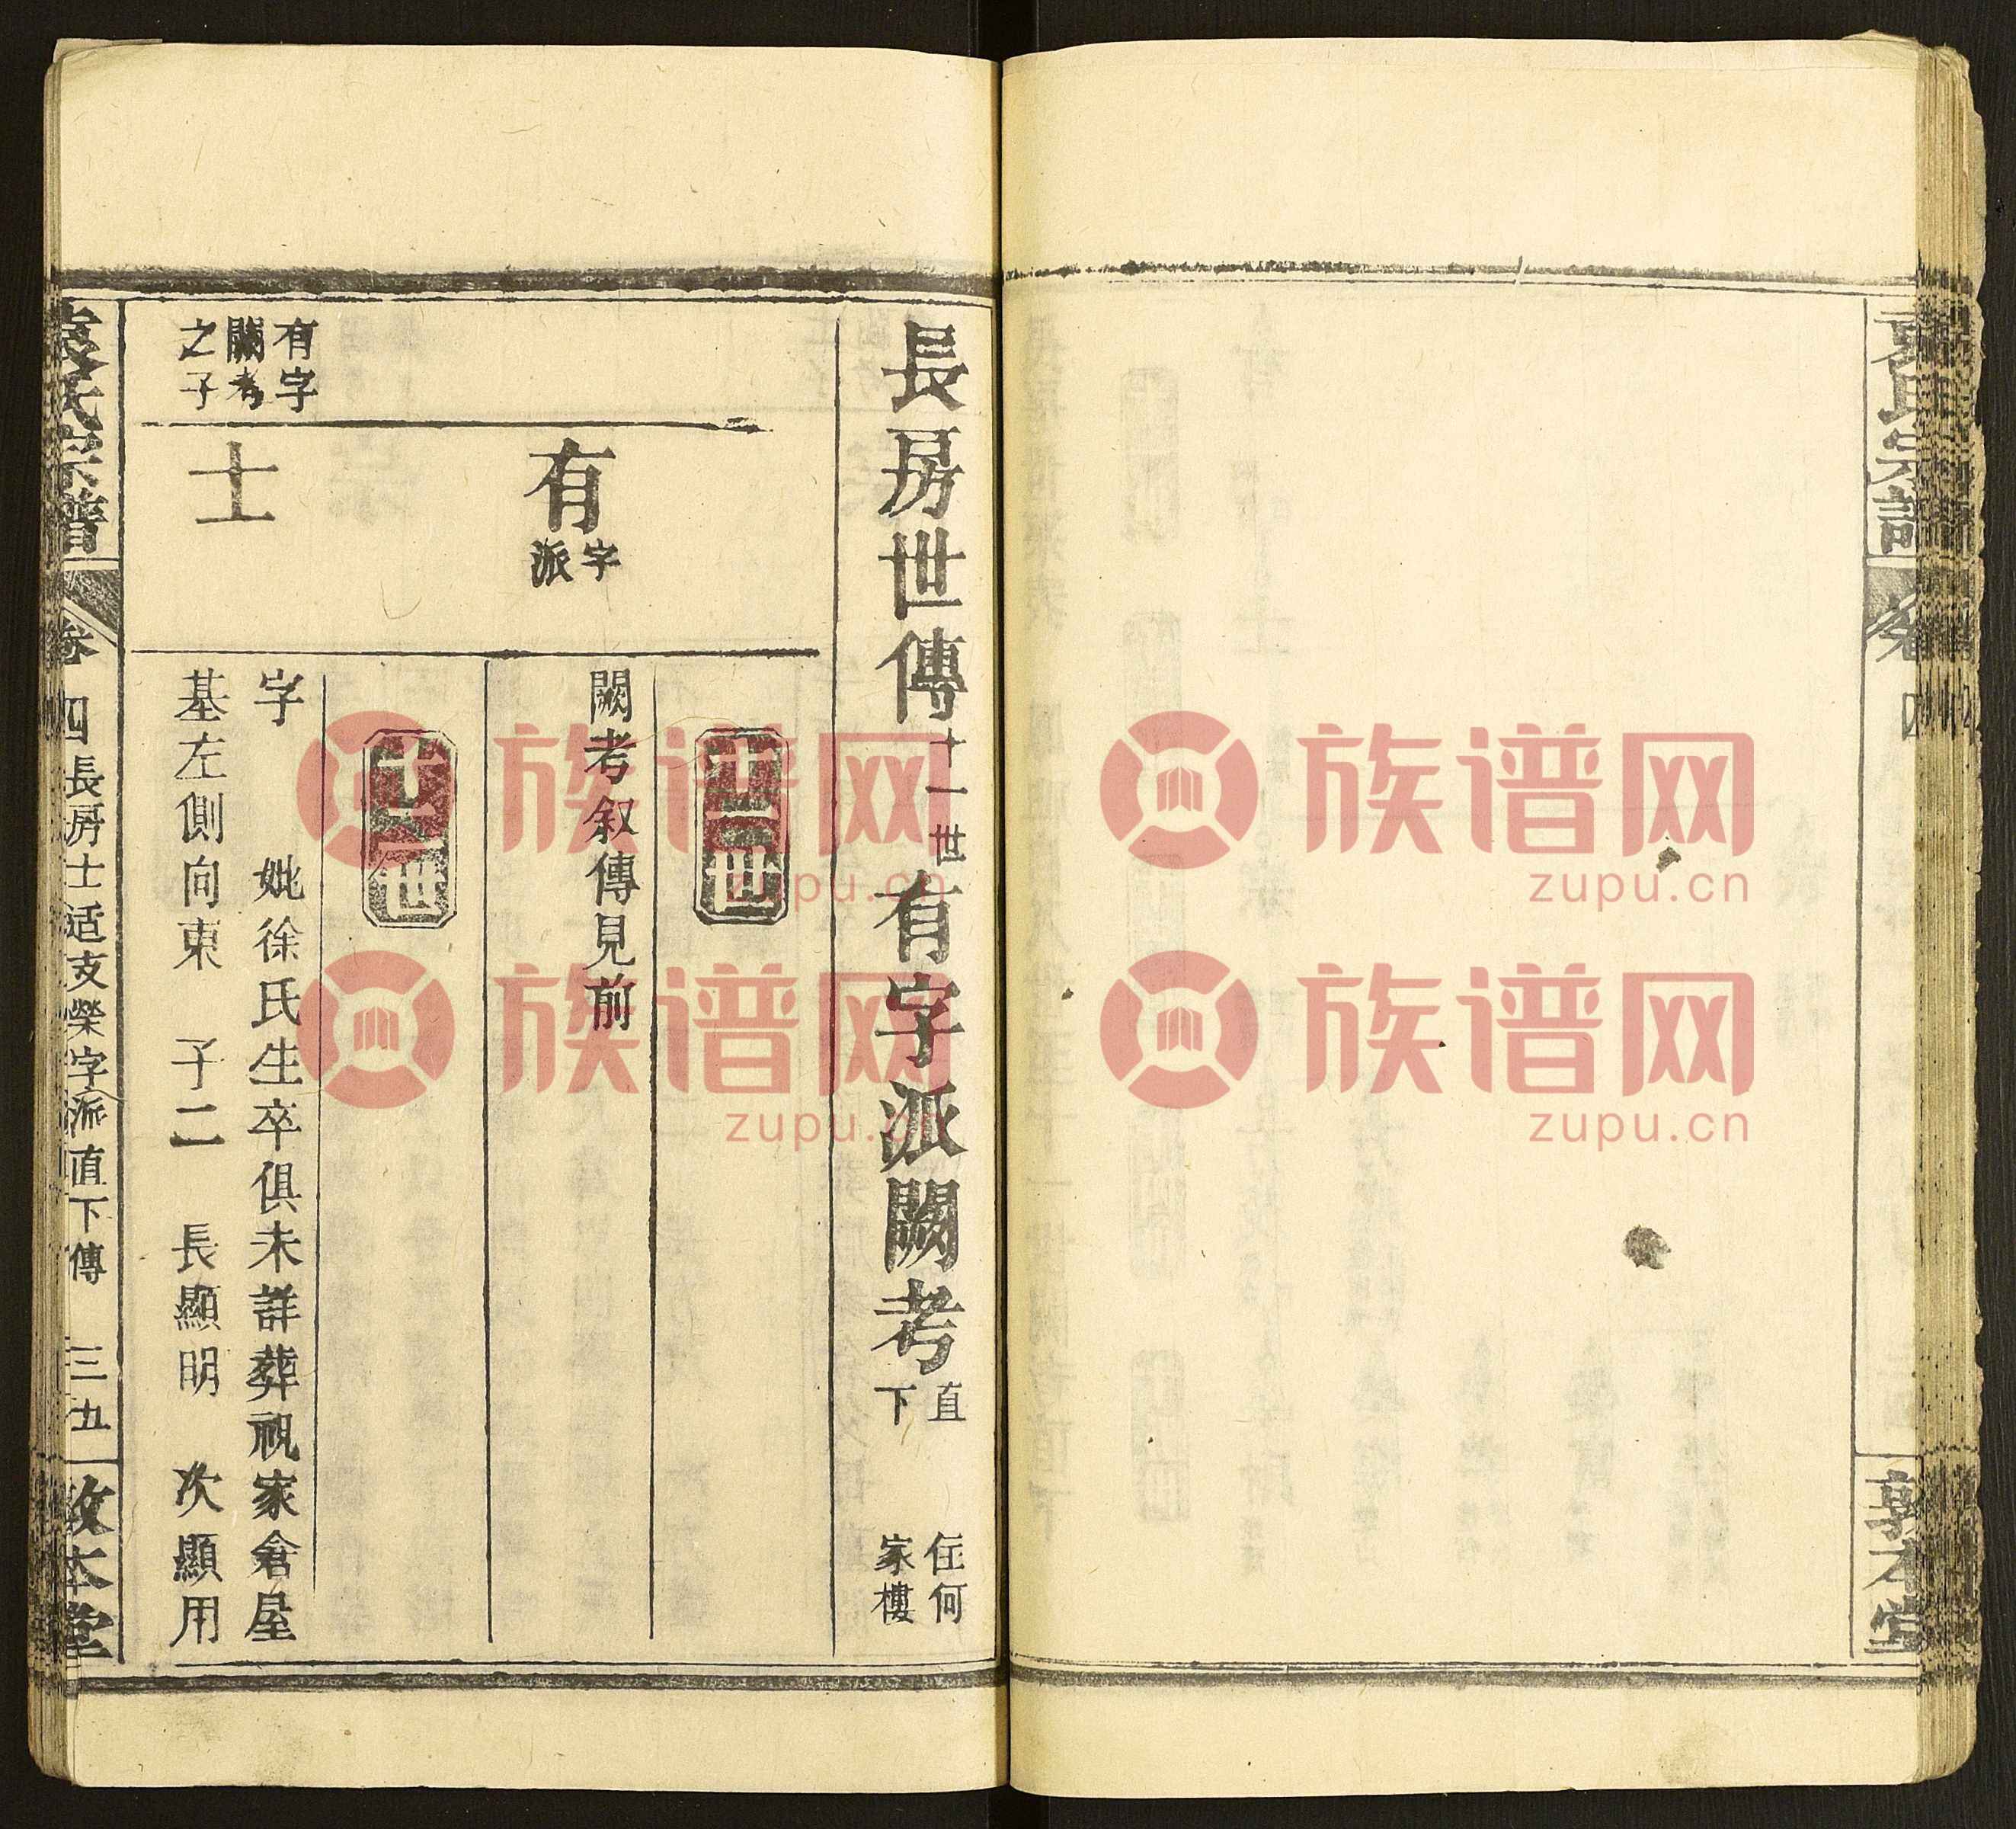 袁氏宗譜
卷
四
敦本堂
長房世傳十一世有字派闕考直下 住何家樓
十一世
有字派
闕考叙傳見前
十二世
有字闕考之子
士
字 妣徐氏生卒俱未詳葬祝家倉屋
基左側向東 子二 長顯明 次顯用
袁氏宗譜
卷四
長房士适支榮字派直下傳
三五
敦本堂
族谱网
zupu.cn
族谱网
zupu.cn
族谱网
zupu.cn
族谱网
zupu.cn